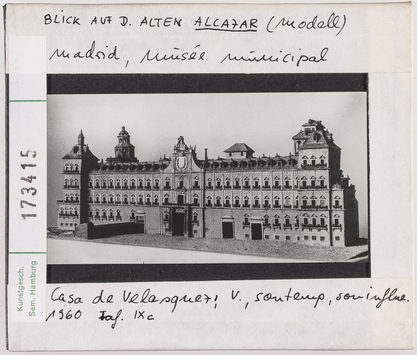 BLICK AUF D. ALTEN ALCAZAR (Modell)
Madrid, Musée municipal
173415
Kunstgesch.
Sem. Hamburg
Casa de Velasquez, V., son temp, son influe.
1960 Taf. IXc